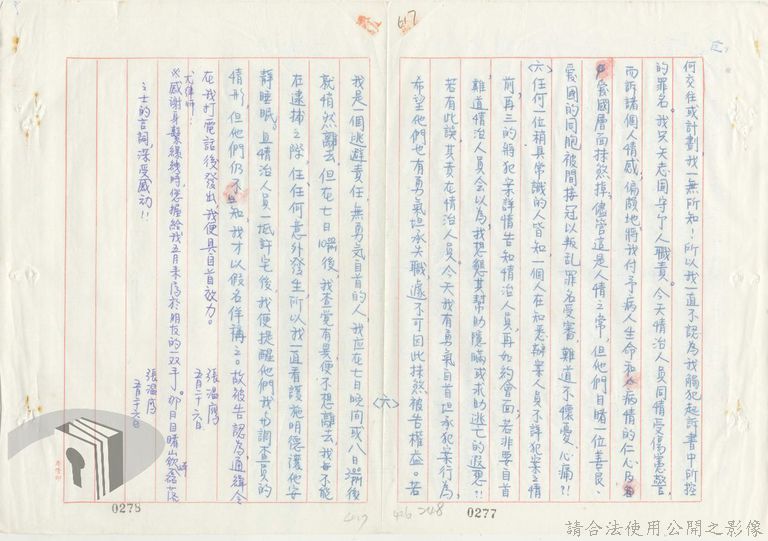 何交往或計劃,我一無所知!所以我一直不認為我觸犯起訴書中所控
的罪名。我只天志固守了人職責。今天情治人員同情受傷憲警,
而訴諸個人情感,偏頗地將我付予病人生命和病情的仁心
愛國層面抹煞掉,儘管這是人情之常,但他們目睹一位善良、
愛國的同胞被間接冠以叛乱罪名受審,難道不懷憂、心痛?!
(六)任何一位稍具常識的人皆知,一個人在知悉辦案人員不詳犯案之情
前,再三的將犯案詳情告知情治人員,再如約會面,若非要自首
難道情治人員会以為,我想慫其幫助隱瞞或求助逃亡的遐思!!
若有此誤,其責在情治人員。今天我有勇氣自首坦承犯案行為,
希望他們也有勇氣坦承失職處,不可因此抹煞被告權益。若
(六)
我是一個逃避責任,無勇気自首的人,我应在七日晚间或八日
就悄然離去,但在七日10時後,我查覺有異,便不想離去,我也不能
在逮捕之際,任任何意外發生,所以我一直看護施明德讓他安
靜睡眠。且情治人員一抵許宅後,我便提醒他們我与調查員的
情形,但他們仍不知我才以假名佯稱之。故被告認為,通緝令
在我打電話後發出,我便具自首效力。
張溫鷹
五月二十六日
尤律師:
※感謝身繫縲絏時,您握給我五月來屬於朋友的一双手。那月目睹
之士的言詞,深受感动!!
張溫鷹
五月二十六日
0278
0277
617
426
248
請合法使用公開之影像